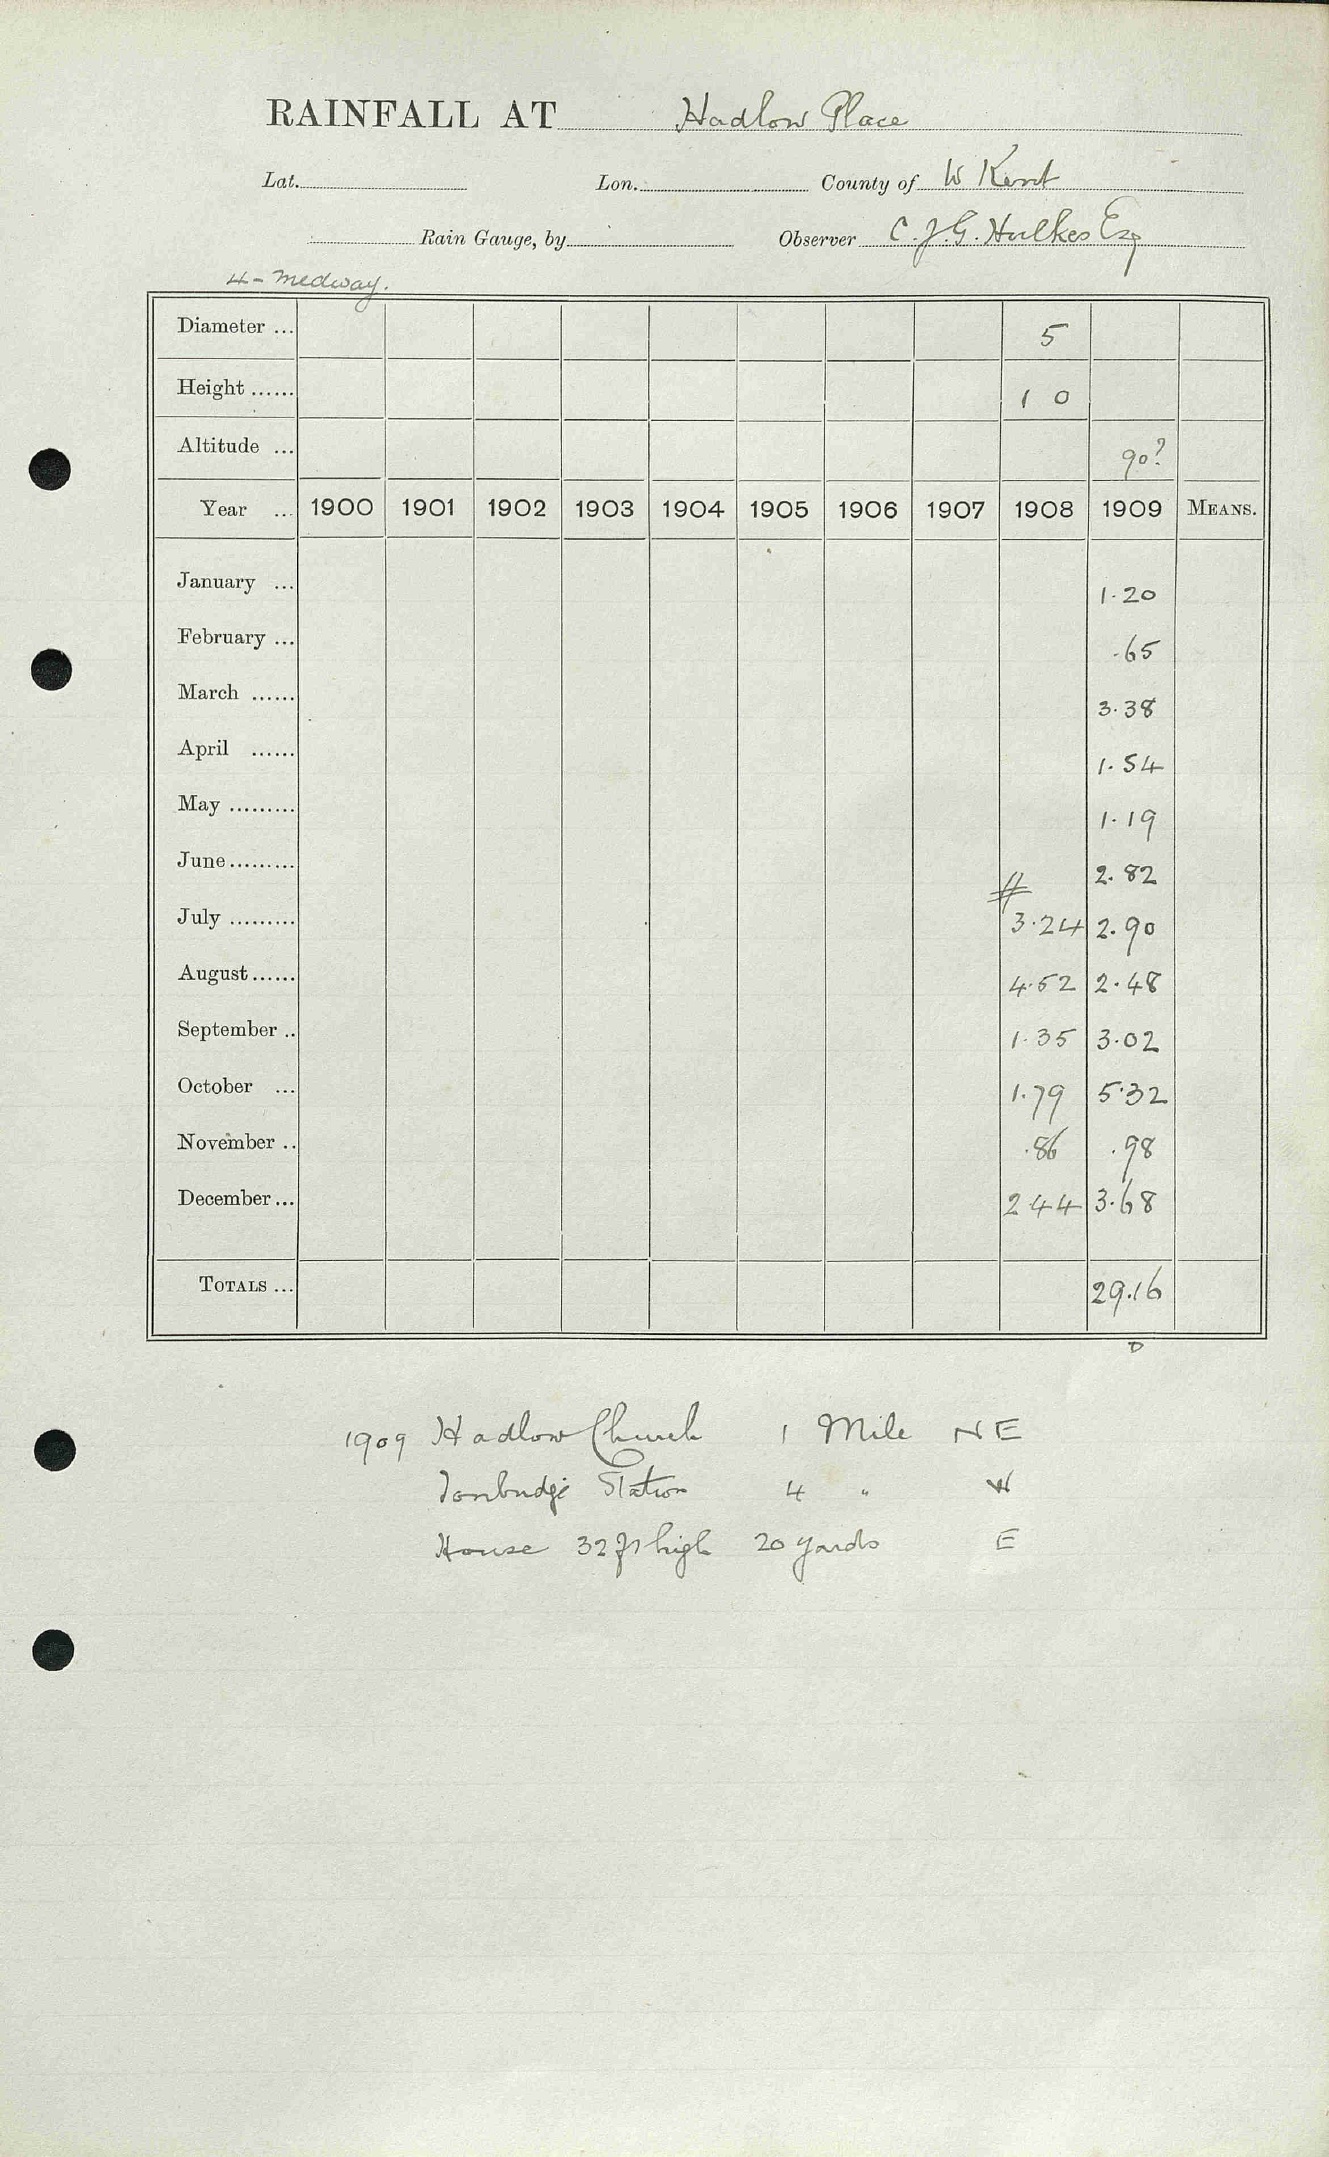 RAINFALL AT Hadlow Place
Lat. Lon. County of W Kent
Rain Gauge, by Observer C.J.G. Hulkes Esq
4 - Medway.
Diameter ... 5
Height ...... 1 0
Altitude ... 90?
Year ... 1900 1901 1902 1903 1904 1905 1906 1907 1908 1909 MEANS.
January ... 1.20
February ... .65
March ...... 3.38
April ...... 1.54
May ......... 1.19
June ......... 2.82
July ......... # 3.24 2.90
August ...... 4.52 2.48
September .. 1.35 3.02
October ... 1.79 5.32
November .. .86 .98
December ... 2 44 3.68
TOTALS ... 29.16
D
1909 Hadlow Church 1 Mile NE
Tonbridge Station 4 " W
House 32 ft high 20 yards E